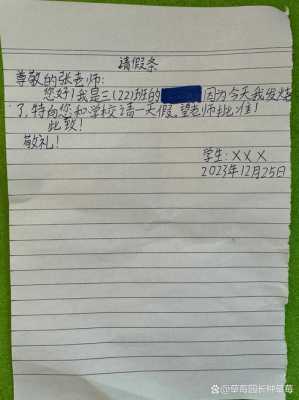 请假条
尊敬的张老师:
您好!我是三(22)班的 因为今天我发烧
了,特向您和学校请一天假,望老师批准!
此致!
敬礼!
学生:XXX
2023年12月25日
@草莓园长种草莓